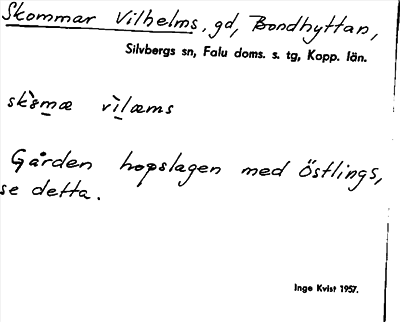 Skommar Vilhelms, gd, Bondhyttan,
Silvbergs sn, Falu doms. s. tg, Kopp. län.
vìlæms
Gården hopslagen med Östlings,
se detta.
Inge Kvist 1957.